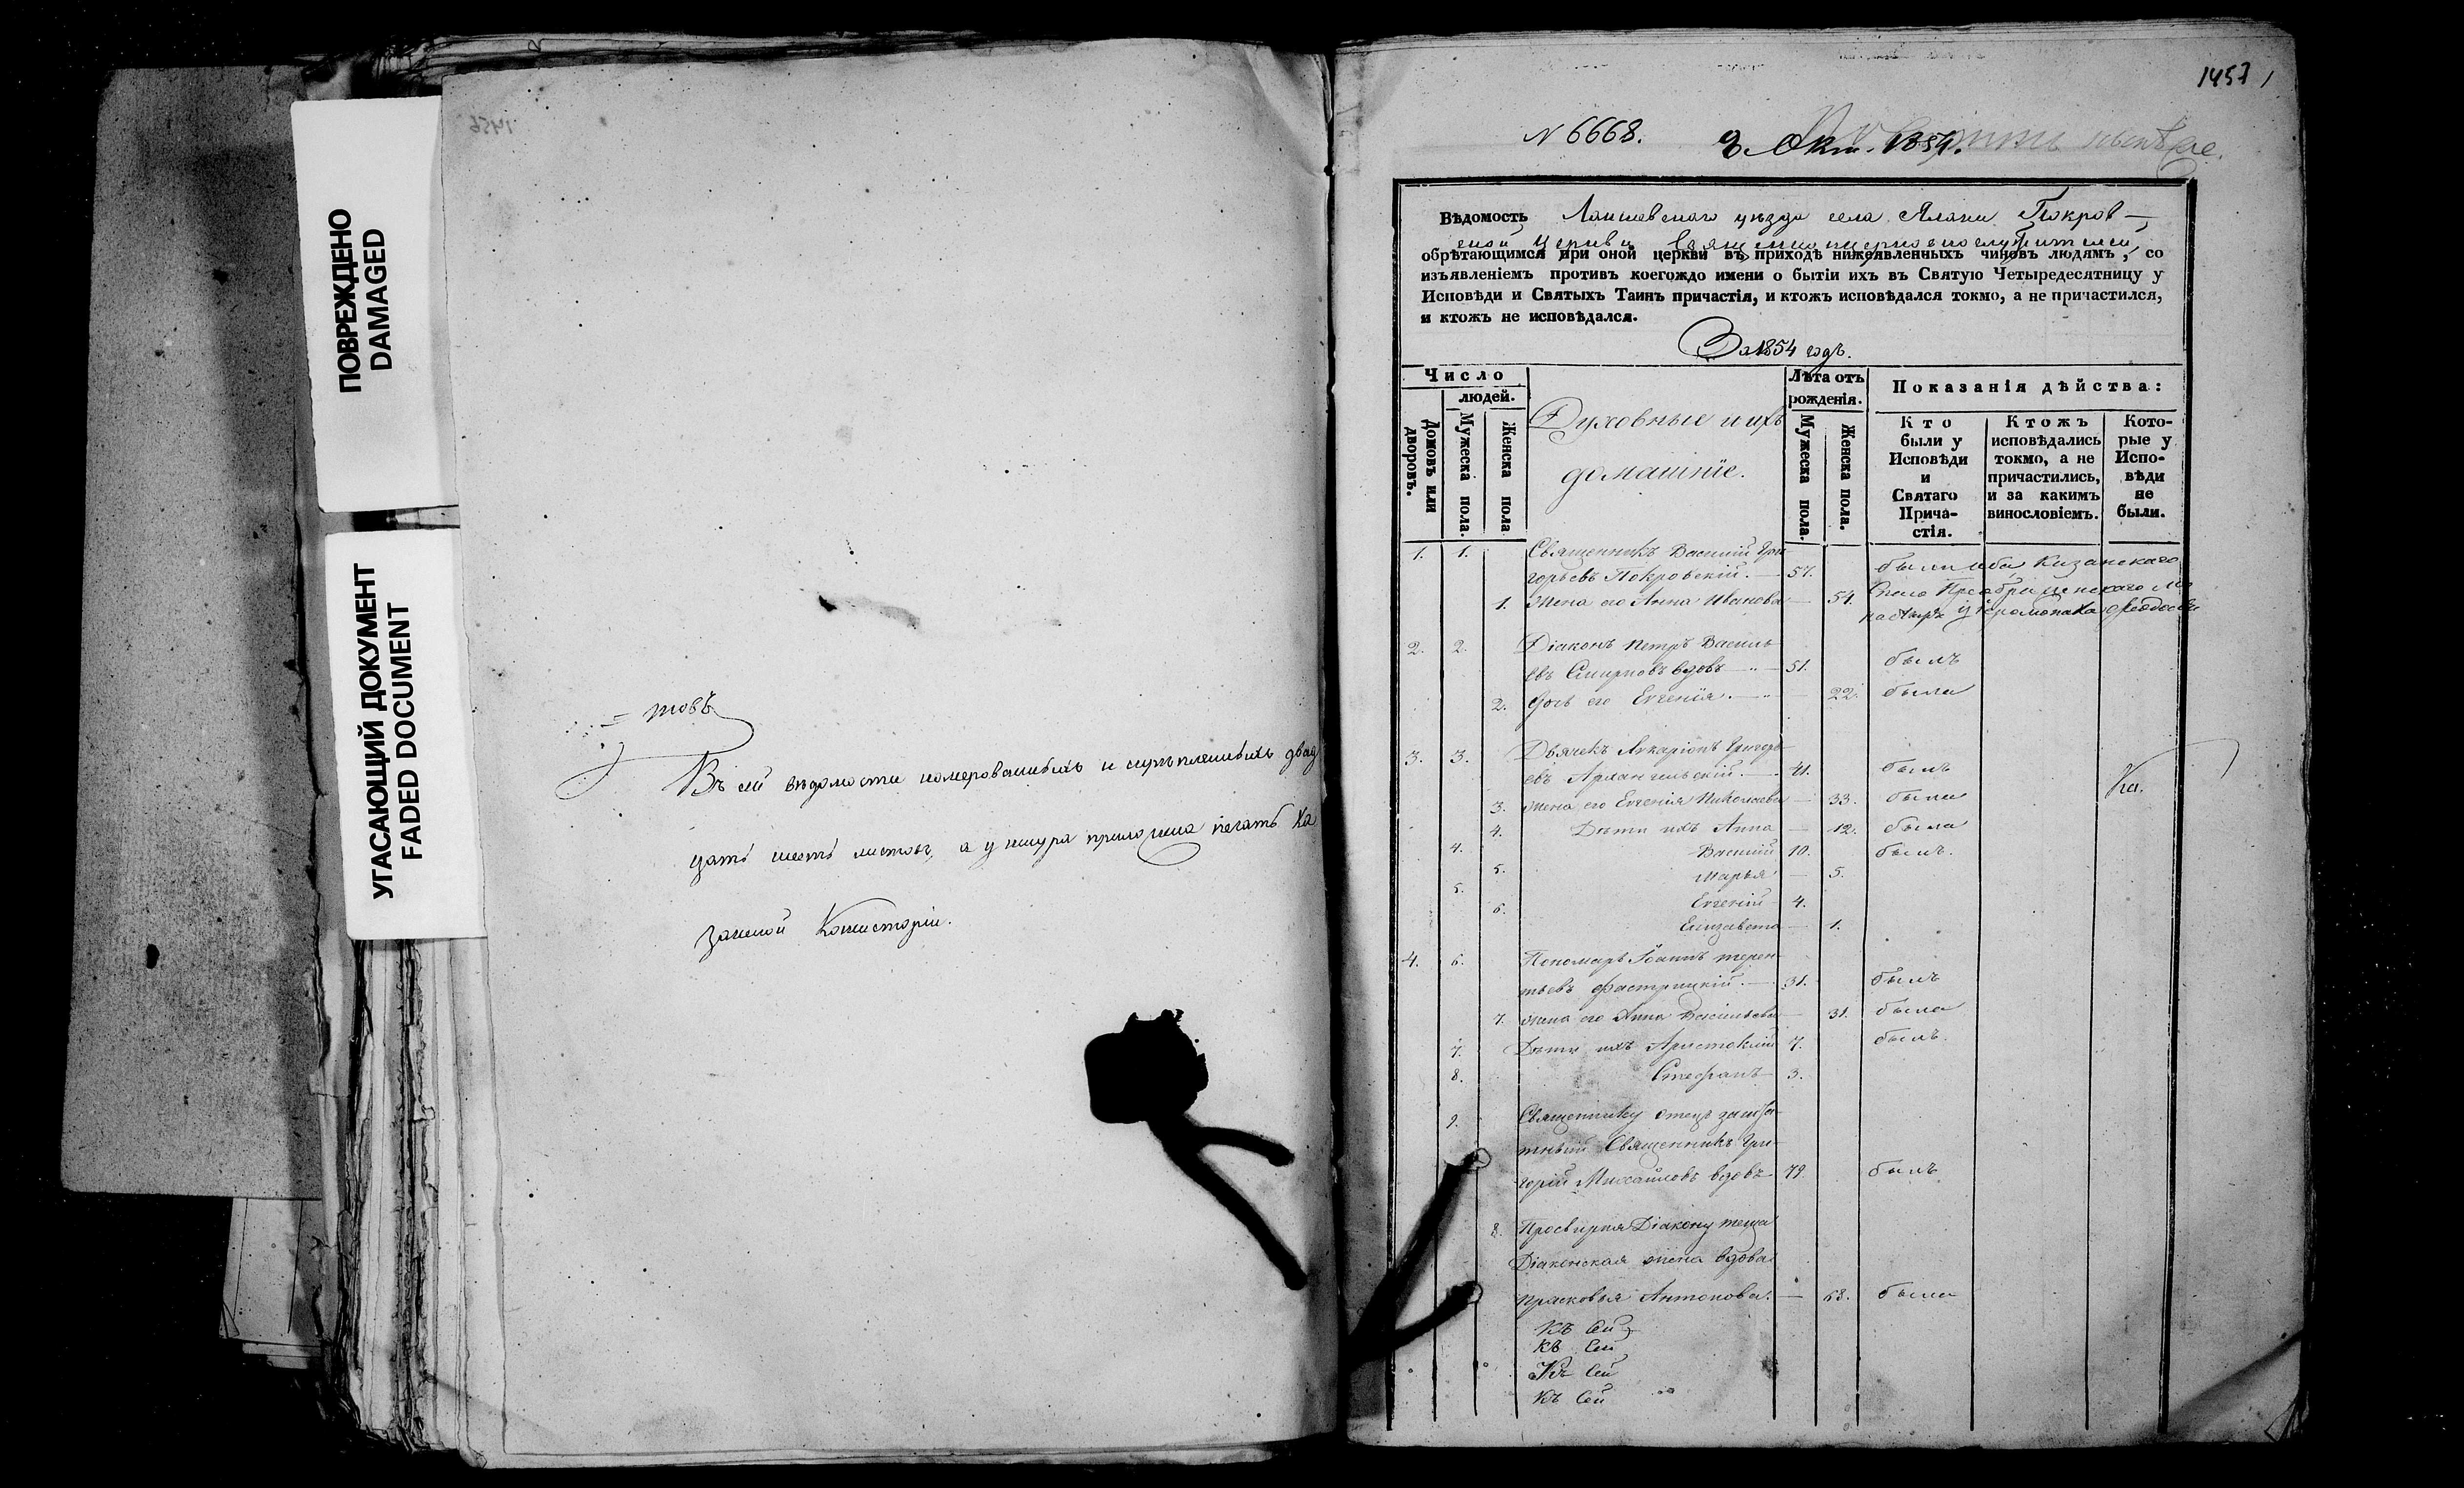 ПОВРЕЖДЕНО
DAMAGED
УГАСАЮЩИЙ ДОКУМЕНТ
FADED DOCUMENT
1456
товъ
Въ сей вѣдомости номерованныхъ и скрѣпленныхъ двад
цать шесть листовъ, а у шнура приложена печать Ка
занской Консисторіи.
1457
N 6668. 2 Окт. 1854.
Вѣдомость Лаишевскаго уѣзда села Алани Покров-
ской церкви Священноцерковнослужителей,
обрѣтающимся при оной церкви въ приходѣ нижеявленныхъ чиновъ людямъ, со
изъявленіемъ противъ коегождо имени о бытіи ихъ въ Святую Четыредесятницу у
Исповѣди и Святыхъ Таинъ причастія, и ктожъ исповѣдался токмо, а не причастился,
и ктожъ не исповѣдался.
За 1854 годъ.
Число
людей.
Домовъ или дворовъ.
Мужеска пола.
Женска пола
Духовные и ихъ
домашніе.
Лѣта отъ
рожденія.
Мужеска пола.
Женска пола.
Показанія дѣйства:
Кто
были у
Исповѣди
и
Святаго
Прича-
стія.
Ктожъ
исповѣдались
токмо, а не
причастились,
и за какимъ
винословіемъ.
Кото-
рые у
Испо-
вѣди
не
были.
1. 1. Священникъ Василій Гри-
горьевъ Покровскій. 57. были оба Казанскаго
1. Жена его Анна Иванова 54. Спасо Преображенскаго Мо
настыря у Іеромонаха
2. 2. Діаконъ Петръ Василь
евъ Смирновъ вдовъ 51. былъ
2. Дочь его Евгенія. 22. была
3. 3. Дьячекъ Иларіонъ Григорь-
евъ Архангельскій. 41. былъ
3. жена его Евгенія Николаева 33. была
Ка.
4. Дѣти ихъ Анна 12. была
4. Василій 10. былъ.
5. Марья 5.
5. Евгеній 4.
6. Елизавета 1.
4. 6. Пономарь Іоаннъ Терен-
тьевъ 31. былъ
7. жена его Анна Васильева 31. была
7. Дѣти ихъ Аристоклій 7. былъ.
8. Стефанъ 3.
9. Священнику отецъ зашта-
тный Священникъ Гри-
горій Михайловъ вдовъ 79. былъ
8. Просвирня Діакону теща
Діаконская жена вдова
Прасковья Антонова. 68. была
Къ Сей
Къ Сей
Къ Сей
Къ Сей